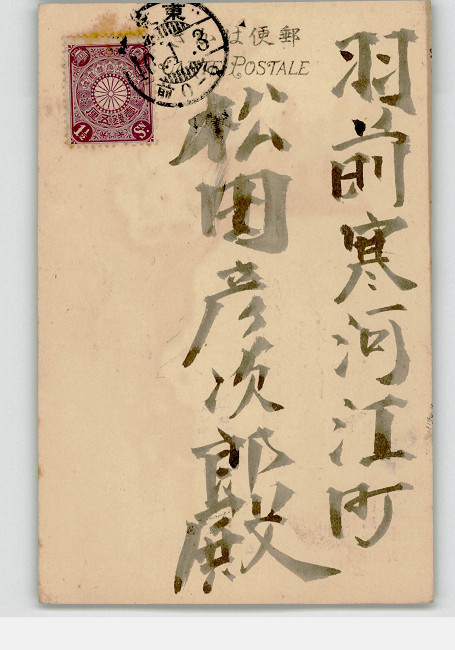 郵便は
CARTE POSTALE
羽前寒河江町
松田彦次郎殿
東
1½ Sn.